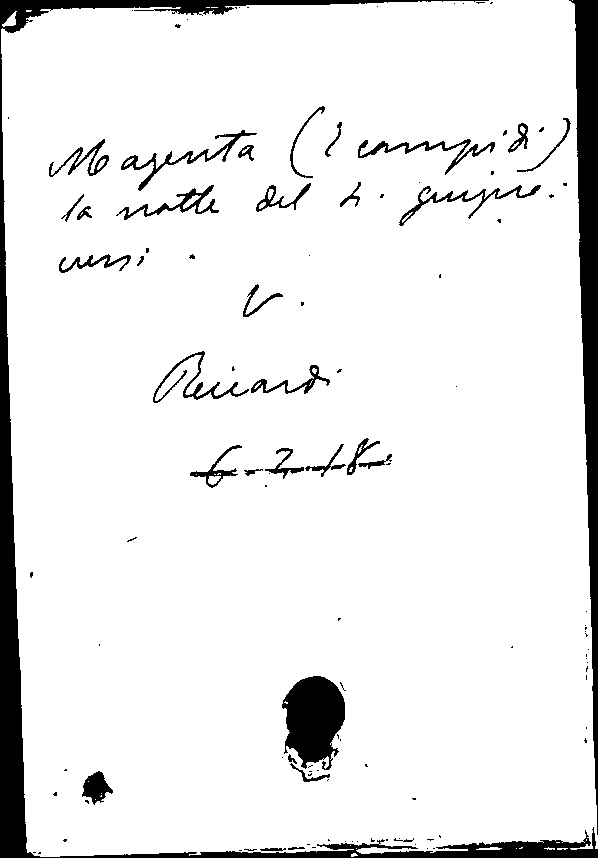 Magenta (I campi di)
la notte del 4. giugno:
versi.
V.
Riccardi
6.2.18.